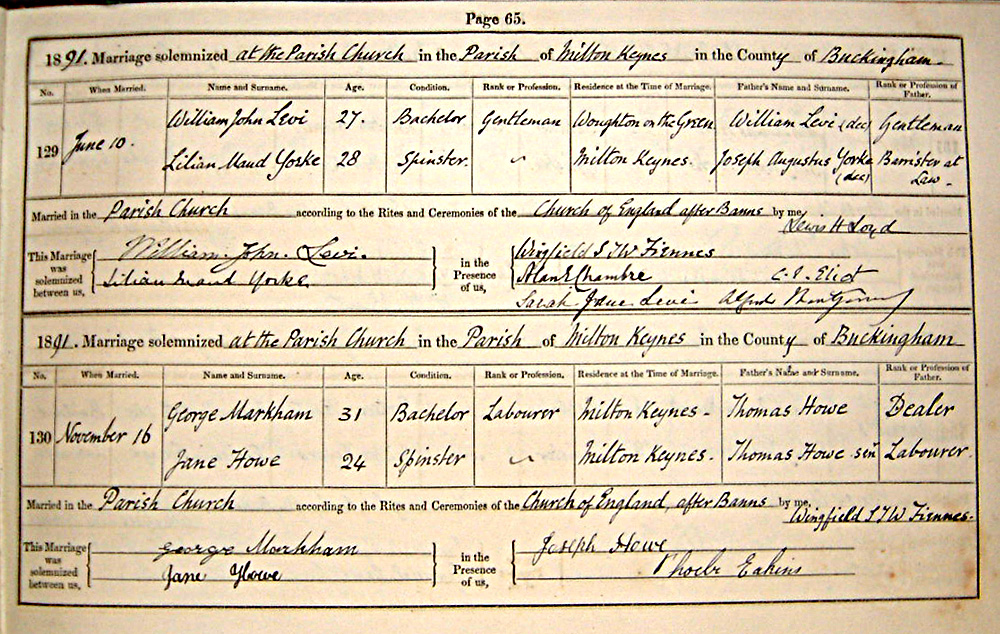 Page 65.
1891. Marriage solemnized at the Parish Church in the Parish of Milton Keynes in the County of Buckingham
No. When Married. Name and Surname. Age. Condition. Rank or Profession. Residence at the Time of Marriage. Father's Name and Surname. Rank or Profession of Father.
129 June 10. William John Levi 27 Bachelor Gentleman Woughton on the Green William Levi (dec) Gentleman
Lilian Maud Yorke 28 Spinster. Milton Keynes. Joseph Augustus Yorke (dec) Barrister at Law
Married in the Parish Church according to the Rites and Ceremonies of the Church of England after Banns by me,
Lewis H Loyd
This Marriage was solemnized between us, William John Levi. in the Presence of us, Wingfield S T W Fiennes
Lilian Maud Yorke Alan E Chambre C. E. Eliot
Sarah Jane Levi Alfred Montgomery
1891. Marriage solemnized at the Parish Church in the Parish of Milton Keynes in the County of Buckingham
No. When Married. Name and Surname. Age. Condition. Rank or Profession. Residence at the Time of Marriage. Father's Name and Surname. Rank or Profession of Father.
130 November 16 George Markham 31 Bachelor Labourer Milton Keynes - Thomas Howe Dealer
Jane Howe 24 Spinster Milton Keynes. Thomas Howe sen Labourer.
Married in the Parish Church according to the Rites and Ceremonies of the Church of England, after Banns by me,
Wingfield S T W Fiennes.
This Marriage was solemnized between us, George Markham in the Presence of us, Joseph Howe
Jane Howe Phoebe Eakins